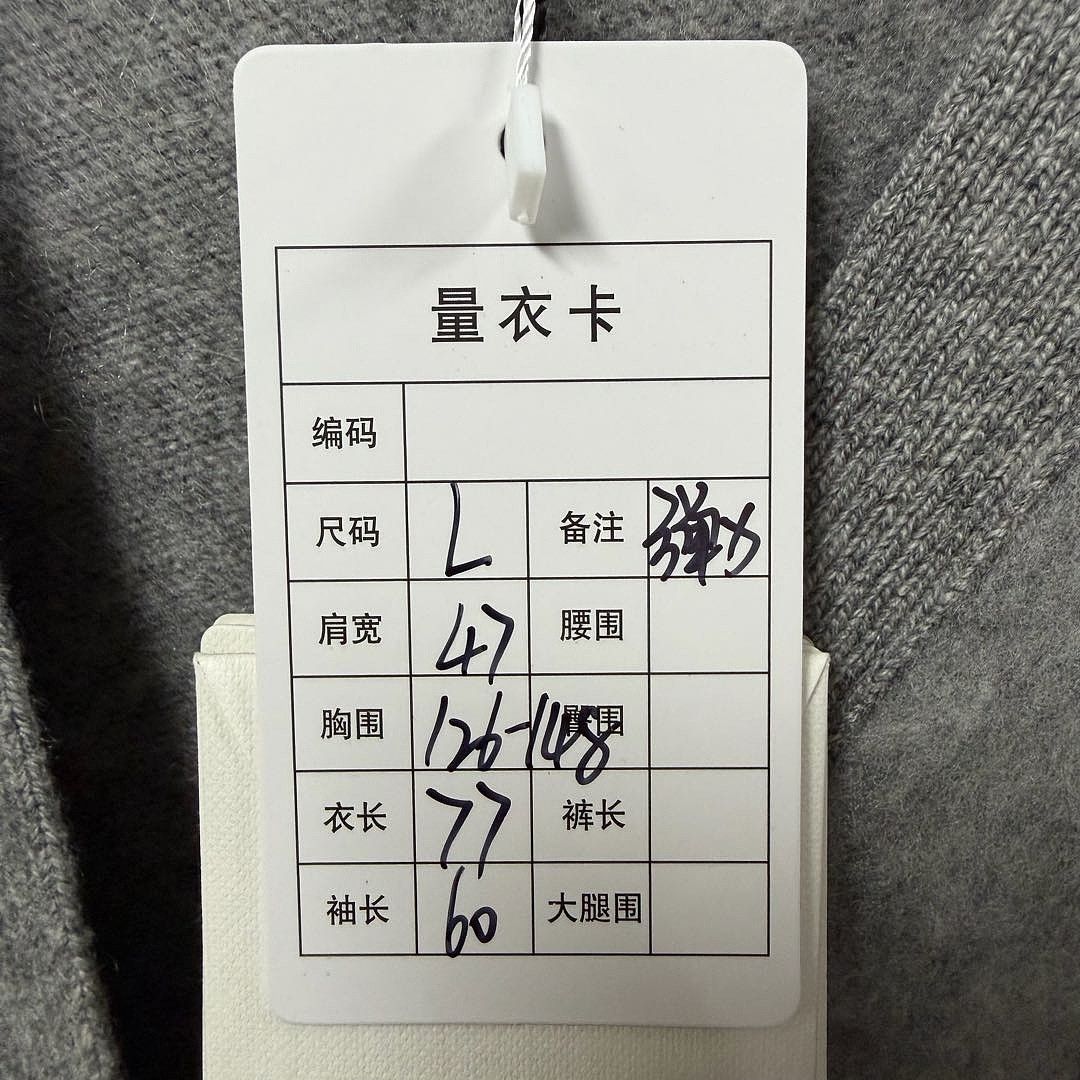 量衣卡
编码
尺码 L 备注 弹力
肩宽 47 腰围
胸围 126-148 臀围
衣长 77 裤长
袖长 60 大腿围